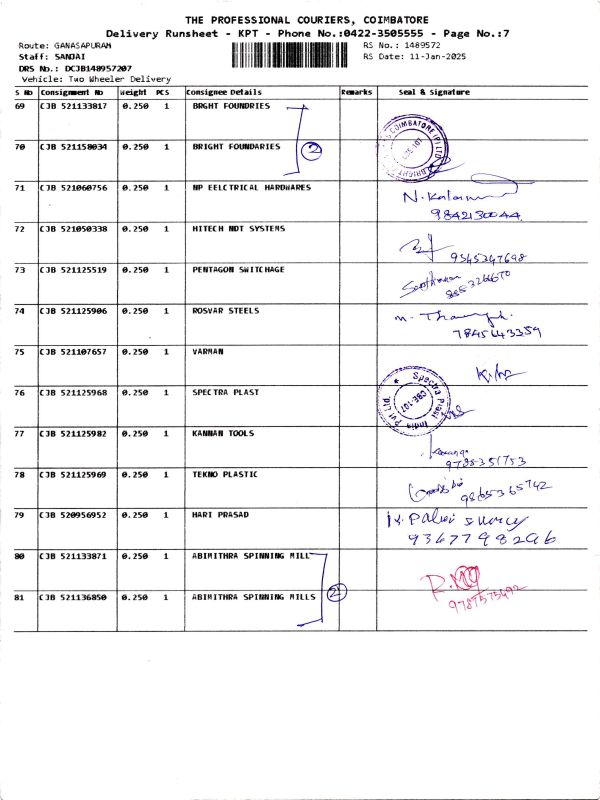 THE PROFESSIONAL COURIERS, COIMBATORE
Delivery Runsheet - KPT - Phone No.:0422-3505555 - Page No.:7
Route: GANASAPURAM
RS No.: 1489572
Staff: SANJAI
RS Date: 11-Jan-2025
DRS No.: DCJB148957207
Vehicle: Two Wheeler Delivery
S No Consignment No Weight PCS Consignee Details Remarks Seal & Signature
69 CJB 521133817 0.250 1 BRGHT FOUNDRIES
70 CJB 521158034 0.250 1 BRIGHT FOUNDARIES 2
COIMBATORE (P) LTD
71 CJB 521060756 0.250 1 MP EELCTRICAL HARDWARES
9842130044
72 CJB 521050338 0.250 1 HITECH NDT SYSTEMS
9345347698
73 CJB 521125519 0.250 1 PENTAGON SWITCHAGE
74 CJB 521125906 0.250 1 ROSVAR STEELS
7845643359
75 CJB 521107657 0.250 1 VARMAN
76 CJB 521125968 0.250 1 SPECTRA PLAST
Spectra Plast India Pvt Ltd
CBE-107
77 CJB 521125982 0.250 1 KANNAN TOOLS
9785351753
78 CJB 521125969 0.250 1 TEKNO PLASTIC
9865365742
79 CJB 520956952 0.250 1 HARI PRASAD
9367798296
80 CJB 521133871 0.250 1 ABIMITHRA SPINNING MILL
81 CJB 521136850 0.250 1 ABIMITHRA SPINNING MILLS 2
9787575492